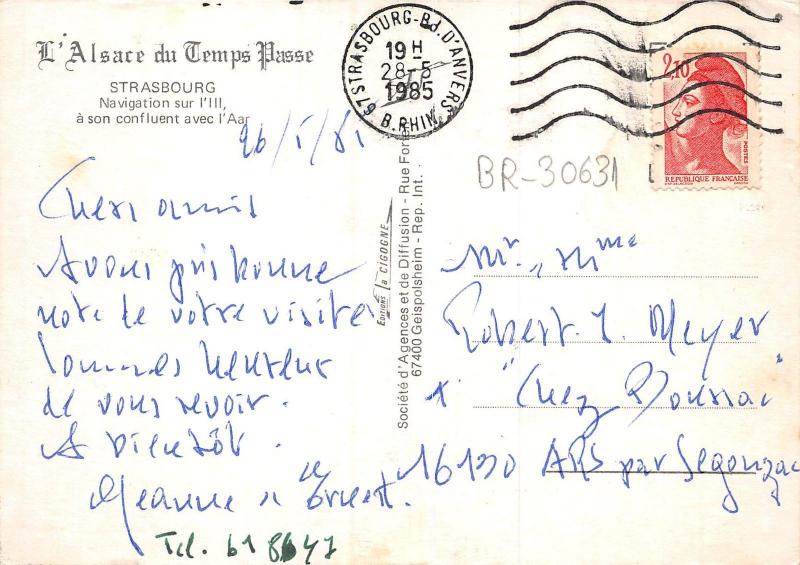 L'Alsace du Temps Passe
STRASBOURG
Navigation sur l'Ill,
à son confluent avec l'Aar
67 STRASBOURG-Bd. D'ANVERS
19 H
28-5
1985
B.RHIN
2,10
POSTES
REPUBLIQUE FRANÇAISE
BR-30631
Chers amis
Avons pris bonne
note de votre visite
Sommes heureux
de vous revoir.
A bientôt.
Jeanne et Ernest.
Tel. 61 8647
Editions la CIGOGNE
Société d'Agences et de Diffusion - Rue
67400 Geispolsheim - Rep. Int.
Mr. Mme
Robert. Meyer
"Chez
16130 ARS par Segonzac